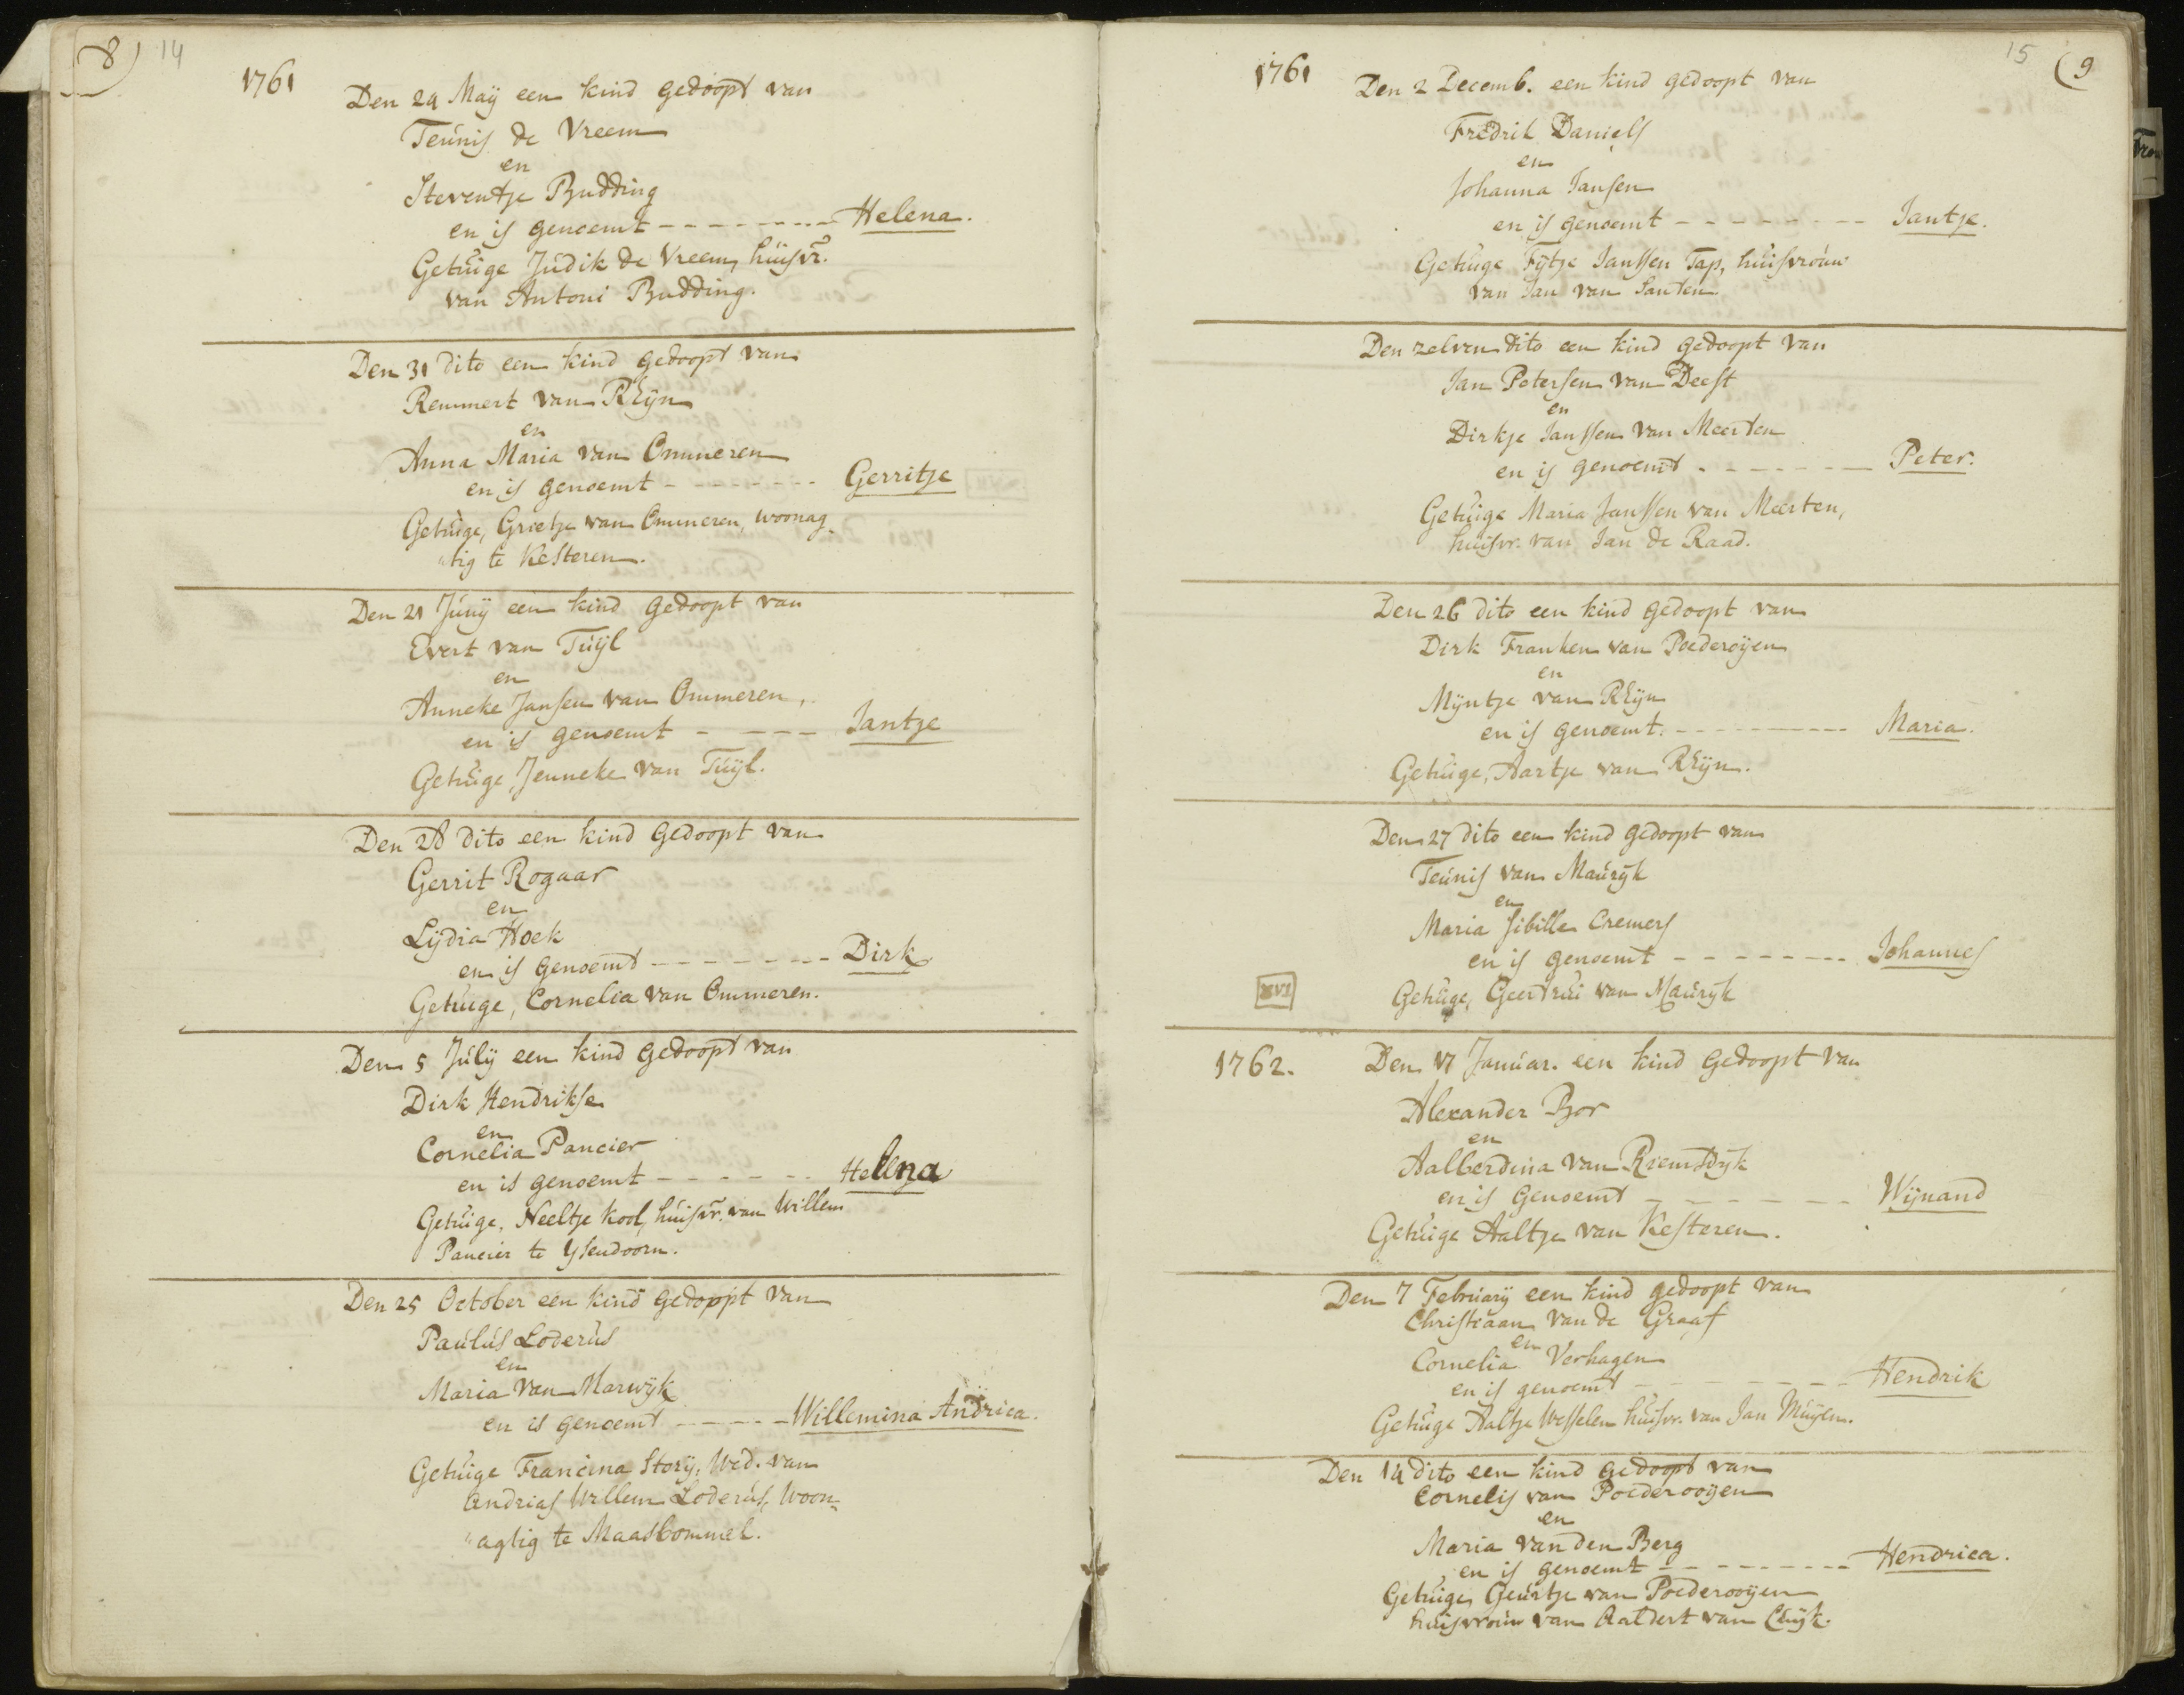 8) 14
1761
Den 24 Maÿ een kind gedoopt van
Teunis de Vreem
en
Steventje Budding
en is genoemt - - - - - - - - Helena.
Getuige Judik de Vreem, huisvr.
van Antoni Budding.
Den 31 dito een kind gedoopt van
Remmert van Rhÿn
en
Anna Maria van Ommeren
en is genoemt - - - - - - - Gerritje
Getuige, Grietje van Ommeren, woonag
"tig te Kesteren.
Den 21 Junÿ een kind gedoopt van
Evert van Tuÿl
en
Anneke Jansen van Ommeren,
en is genoemt - - - - Jantje
Getuige, Jenneke van Tuÿl.
Den 28 dito een kind gedoopt van
Gerrit Rogaar
en
Lÿdia Hoek
en is genoemt - - - - - - - Dirk
Getuige, Cornelia van Ommeren.
Den 5 Julÿ een kind gedoopt van
Dirk Hendrikse
en
Cornelia Pancier
en is genoemt - - - - - - Helena
Getuige, Neeltje Kool, huisvr. van Willem
Pancier te Ysendoorn.
Den 25 October een kind gedoppt van
Paulus Loderus
en
Maria van Marwÿk
en is genoemt - - - - - Willemina Andrica.
Getuige Francina Storÿ, Wed. van
Andrias Willem Loderus, Woon-
"agtig te Maasbommel.
15 (9
1761
Den 2 Decemb. een kind gedoopt van
Fredrik Daniels
en
Johanna Jansen
en is genoemt - - - - - - - - Jantje.
Getuige Fÿtje Janssen Tap, huisvrouw
van Jan van Santen
Den zelven dito een kind gedoopt van
Jan Petersen van Deest
en
Dirkje Janssen van Meerten
en is genoemt - - - - - - - Peter.
Getuige Maria Janssen van Meerten,
huisvr. van Jan de Raad.
Den 26 dito een kind gedoopt van
Dirk Franken van Poederoÿen
en
Mÿntje van Rhÿn
en is genoemt. - - - - - - - - - Maria.
Getuige, Aartje van Rhÿn.
Den 27 dito een kind gedoopt van
Teunis van Maurÿk
en
Maria Sibille Cremers
en is genoemt - - - - - - - - Johannes
XVI
Getuige, Geertrui van Maurÿk
1762.
Den 17 Januar. een kind gedoopt van
Alexander Bor
en
Aalberdina van Riemsdÿk
en is genoemt - - - - - - - Wÿnand
Getuige Aaltje van Kesteren.
Den 7 Februarÿ een kind gedoopt van
Christiaan van de Graaf
en
Cornelia Verhagen
en is genoemt - - - - - - - Hendrik
Getuige Aaltje Wesselen huisvr. van Jan Muÿen.
Den 14 dito een kind gedoopt van
Cornelis van Poederooÿen
en
Maria van den Berg
en is genoemt - - - - - - - - - Hendrica.
Getuige, Geurtje van Poederooÿen
huisvrouw van Aaldert van Cuÿk.